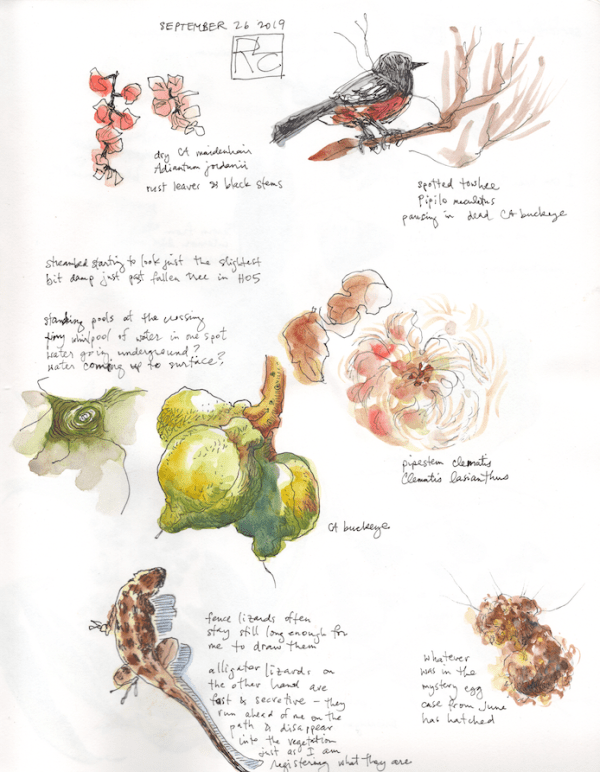 SEPTEMBER 26 2019
RLC
dry CA maidenhair
Adiantum jordanii
rust leaves & black stems
spotted towhee
Pipilo maculatus
pausing in dead CA buckeye
streambed starting to look just the slightest
bit damp just past fallen tree in H05
standing pools at the crossing
tiny whirlpool of water in one spot
water going underground?
water coming up to surface?
pipestem clematis
Clematis lasianthus
CA buckeye
fence lizards often
stay still long enough for
me to draw them
alligator lizards on
the other hand are
fast & secretive – they
run ahead of me on the
path & disappear
into the vegetation
just as I am
registering what they are
whatever
was in the
mystery egg
case from June
has hatched